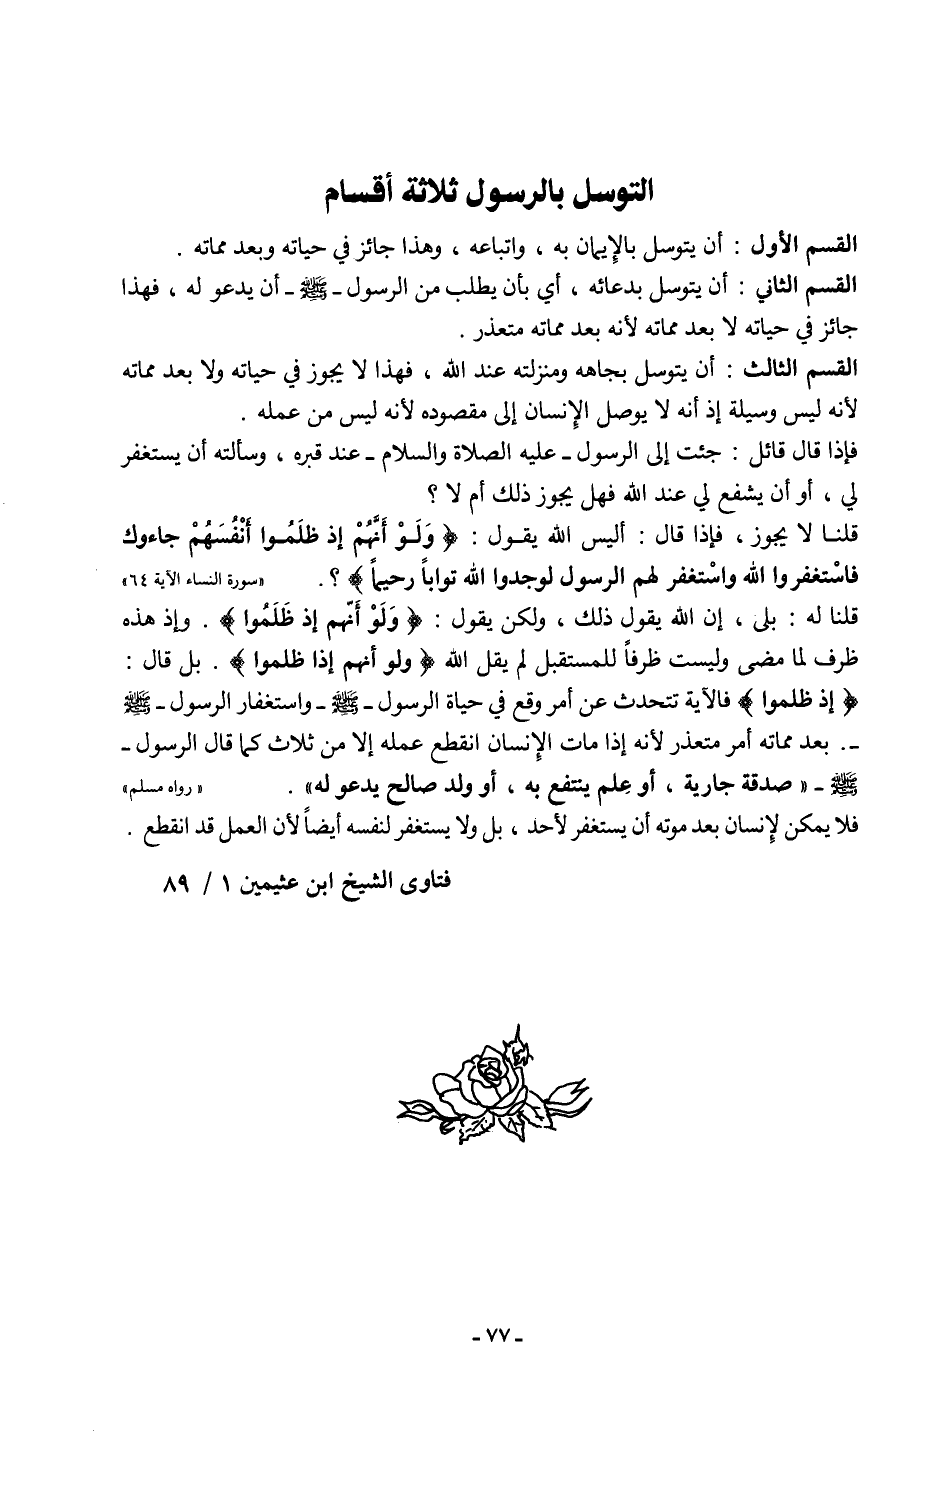 التوسل بالرسول ثلاثة أقسام
القسم الأول : أن يتوسل بالإيمان به ، واتباعه ، وهذا جائز في حياته وبعد مماته .
القسم الثاني : أن يتوسل بدعائه ، أي بأن يطلب من الرسول ـ ﷺ ـ أن يدعو له ، فهذا
جائز في حياته لا بعد مماته لأنه بعد مماته متعذر .
القسم الثالث : أن يتوسل بجاهه ومنزلته عند الله ، فهذا لا يجوز في حياته ولا بعد مماته
لأنه ليس وسيلة إذ أنه لا يوصل الإنسان إلى مقصوده لأنه ليس من عمله .
فإذا قال قائل : جئت إلى الرسول ـ عليه الصلاة والسلام ـ عند قبره ، وسألته أن يستغفر
لي ، أو أن يشفع لي عند الله فهل يجوز ذلك أم لا ؟
قلنـا لا يجوز ، فإذا قال : أليس الله يقـول : ﴿ وَلَـوْ أَنَّهُمْ إذ ظلَمُـوا أَنْفُسَهُمْ جاءوك
فاسْتغفروا الله واسْتغفر لهم الرسول لوجدوا الله تواباً رحيماً ﴾ ؟ . «سورة النساء الآية ٦٤»
قلنا له : بلى ، إن الله يقول ذلك ، ولكن يقول : ﴿ وَلَوْ أنّهم إذ ظَلَمُوا ﴾ . وإذ هذه
ظرف لما مضى وليست ظرفاً للمستقبل لم يقل الله ﴿ ولو أنهم إذا ظلموا ﴾ . بل قال :
﴿ إذ ظلموا ﴾ فالآية تتحدث عن أمر وقع في حياة الرسول ـ ﷺ ـ واستغفار الرسول ـ ﷺ
ـ. بعد مماته أمر متعذر لأنه إذا مات الإنسان انقطع عمله إلا من ثلاث كما قال الرسول ـ
ﷺ ـ « صدقة جارية ، أو عِلم ينتفع به ، أو ولد صالح يدعو له» . « رواه مسلم»
فلا يمكن لإنسان بعد موته أن يستغفر لأحد ، بل ولا يستغفر لنفسه أيضاً لأن العمل قد انقطع .
فتاوى الشيخ ابن عثيمين ١ / ٨٩
ـ ٧٧ ـ